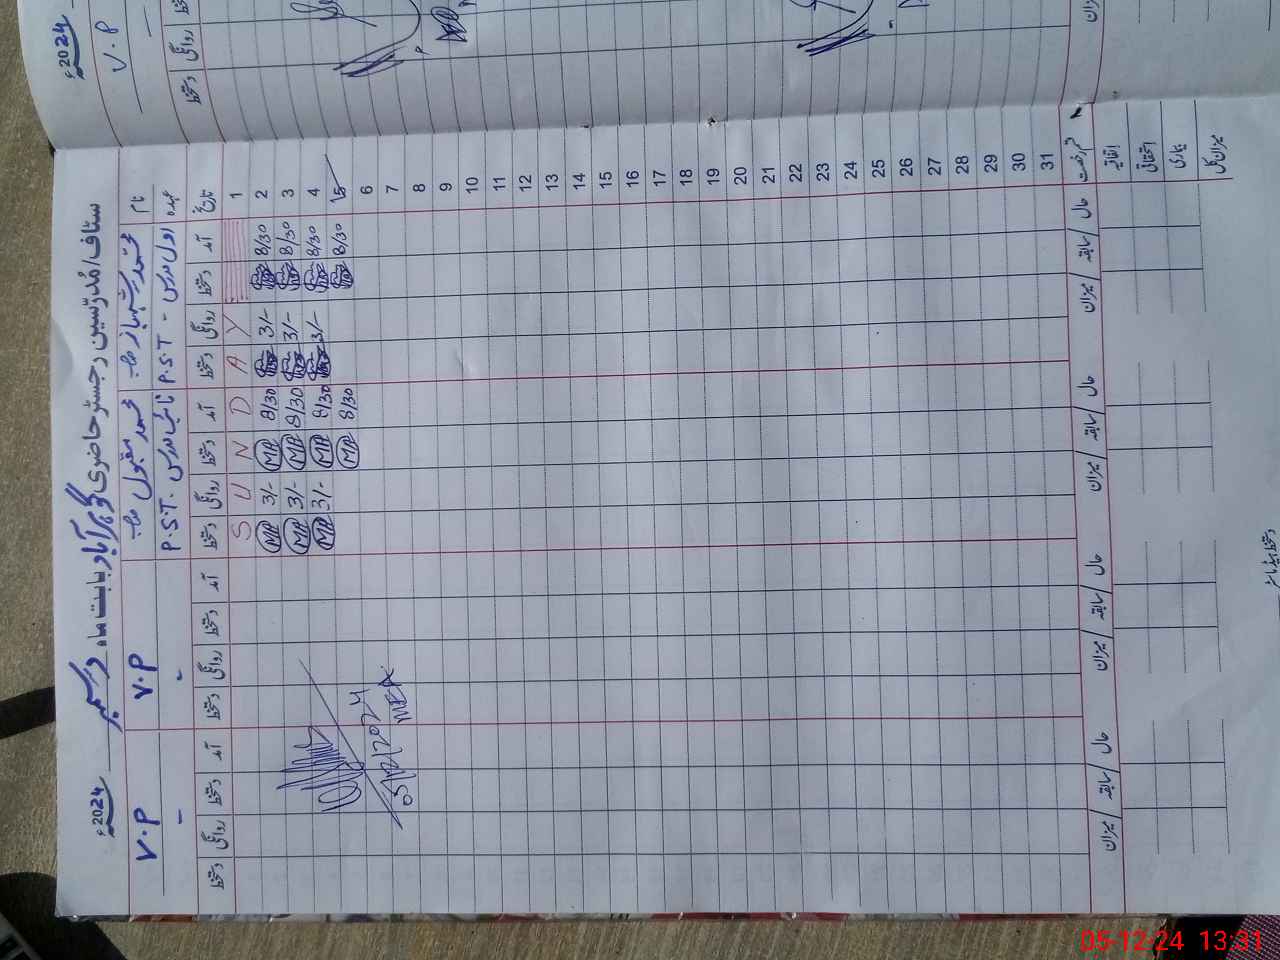 سٹاف/مُدرّسین رجسٹر حاضری گوہرآباد بابت ماہ دسمبر 2024ء
نام محمد شہباز محمد مقبول V.P V.P
عہدہ اول مدرس - P.S.T نائب مدرس P.S.T. - -
تاریخ آمد دستخط روانگی دستخط آمد دستخط روانگی دستخط آمد دستخط روانگی دستخط آمد دستخط روانگی دستخط
1 Y A D N U S
2 8/30 3/- 8/30 MA 3/- MA
3 8/30 3/- 8/30 MA 3/- MA
4 8/30 3/- 8/30 MA 3/- MA
5 8/30 8/30 MA
6
7
8
9
10
11
12
13
14
15
16
17
18
19
20
21
22
23
24
25
26
27
28
29
30
31
05/12/2024
MEA
قسم رخصت حال سابقہ میزان حال سابقہ میزان حال سابقہ میزان حال سابقہ میزان
اتفاقیہ
استحقاقی
بیماری
میزان کل
2024ء
V.P
روانگی دستخط
میزان
05-12-24 13:31